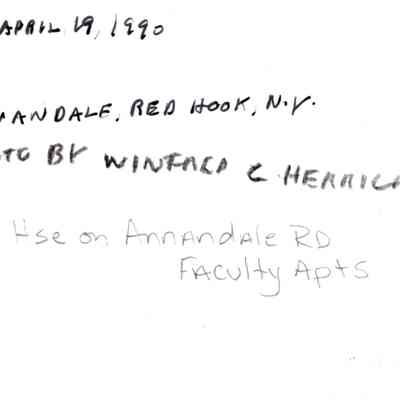 APRIL 19, 1990
NANDALE, RED HOOK, N.Y.
OTO BY WINFRED C HERRICK
Hse on Annandale RD
Faculty Apts